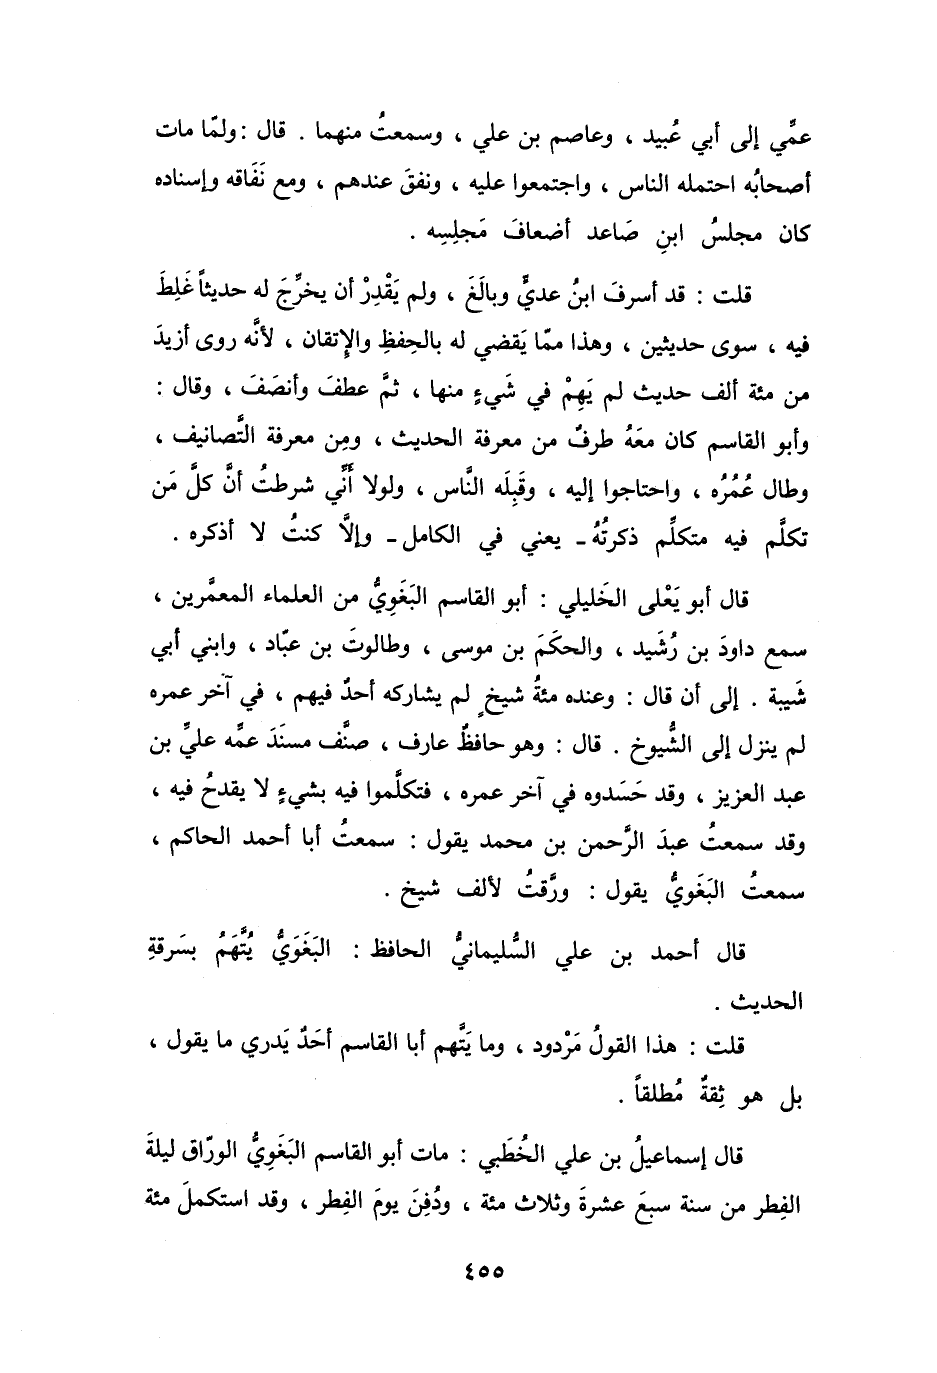 عمِّي إلى أبي عُبيد ، وعاصم بن علي ، وسمعتُ منهما . قال : ولمّا مات
أصحابُه احتمله الناس ، واجتمعوا عليه ، ونفقَ عندهم ، ومع نَفَاقه وإسناده
كان مجلسُ ابنِ صَاعد أضعافَ مَجلِسِه .
قلت : قد أسرفَ ابنُ عديٍّ وبالَغَ ، ولم يَقْدِرْ أن يخرِّجَ له حديثاً غَلِطَ
فيه ، سوى حديثين ، وهذا ممّا يَقضي له بالحِفظِ والإِتقان ، لأنَّه روى أزيدَ
من مئة ألف حديث لم يَهِمْ في شَيءٍ منها ، ثمَّ عطفَ وأنصَفَ ، وقال :
وأبو القاسم كان معَهُ طرفٌ من معرفة الحديث ، ومِن معرفة التَّصانيف ،
وطال عُمُرُه ، واحتاجوا إليه ، وقَبِلَه النَّاس ، ولولا أَنِّي شرطتُ أنَّ كلَّ مَن
تكلَّم فيه متكلِّم ذكرتُهُ ـ يعني في الكامل ـ وإلَّا كنتُ لا أذكره .
قال أبو يَعْلى الخَليلي : أبو القاسم البَغَوِيُّ من العلماء المعمَّرين ،
سمع داودَ بن رُشَيد ، والحكَمَ بن موسى ، وطالوتَ بن عبّاد ، وابني أبي
شَيبة . إلى أن قال : وعنده مئةُ شيخٍ لم يشاركه أحدٌ فيهم ، في آخر عمره
لم ينزل إلى الشُّيوخ . قال : وهو حافظٌ عارف ، صنَّف مسنَدَ عمِّه عليِّ بن
عبد العزيز ، وقد حَسَدوه في آخر عمره ، فتكلَّموا فيه بشيءٍ لا يقدحُ فيه ،
وقد سمعتُ عبدَ الرَّحمن بن محمد يقول : سمعتُ أبا أحمد الحاكم ،
سمعتُ البَغَويُّ يقول : ورَّقتُ لألف شيخ .
قال أحمد بن علي السُّليمانيُّ الحافظ : البَغَوَيُّ يُتَّهَمُ بسَرقةِ
الحديث .
قلت : هذا القولُ مَرْدود ، وما يَتَّهم أبا القاسم أحَدٌ يَدري ما يقول ،
بل هو ثِقةٌ مُطلقاً .
قال إسماعيلُ بن علي الخُطَبي : مات أبو القاسم البَغَوِيُّ الورّاق ليلةَ
الفِطر من سنة سبعَ عشرةَ وثلاث مئة ، ودُفِنَ يومَ الفِطر ، وقد استكملَ مئة
٤٥٥